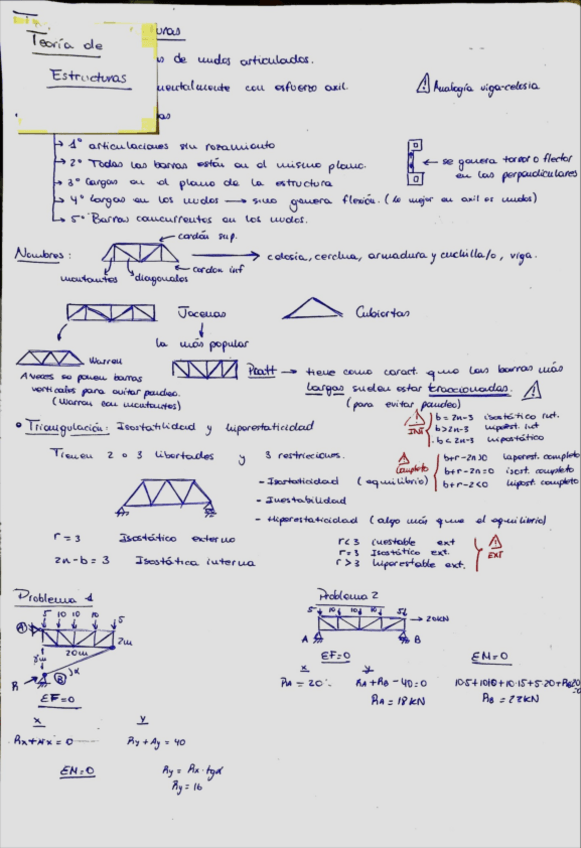 Teoría de
Estructuras
uras
s de nudos articulados.
mentalmente con esfuerzo axil.
Analogía viga-celosia
as
1º articulaciones sin rozamiento
2º Todas las barras están en el mismo plano.
3º Cargas en el plano de la estructura
4º Cargas en los nudos → sino genera flexión. (Lo mejor en axil es nudos)
5º Barras concurrentes en los nudos.
← se genera torsor o flector
en las perpendiculares
Nombres:
cordón sup.
cordon inf
montantes diagonales
→ celosia, cercha, armadura y cuchillo/o, viga.
Jacenas
Cubiertas
la más popular
Warren
A veces se ponen barras
verticales para evitar pandeo.
(Warren con montantes)
Pratt → tiene como caract. que las barras más
largas suelen estar traccionadas.
(para evitar pandeo)
• Triangulación: Isostatilidad y hiperestaticidad
INT
b = 2n-3 isostático int.
b > 2n-3 hiperest. int
b < 2n-3 hipostático
Tienen 2 o 3 libertades y 3 restricciones.
Completo
b+r-2n>0 hiperest. completo
b+r-2n=0 isost. completo
b+r-2<0 hipost. completo
- Isostaticidad (equilibrio)
- Inestabilidad
- Hiperestaticidad (algo más que el equilibrio)
r = 3 Isostático externo
2n-b = 3 Isostática interna
r<3 inestable ext
r=3 Isostático ext.
r>3 hiperestable ext.
EXT
Problema 1
5 10 10 10 5
A
2m
20m
B
α
R
EF=0
x y
Rx+Ax=0 Ry+Ay=40
EM=0
Ry = Rx·tgα
Ry=16
Problema 2
5 10 10 10 5
20kN
A B
EF=0
x y
RA=20 RA+RB-40=0
RA=18kN
EM=0
10·5+10·10+10·15+5·20+RB20
RB=22kN